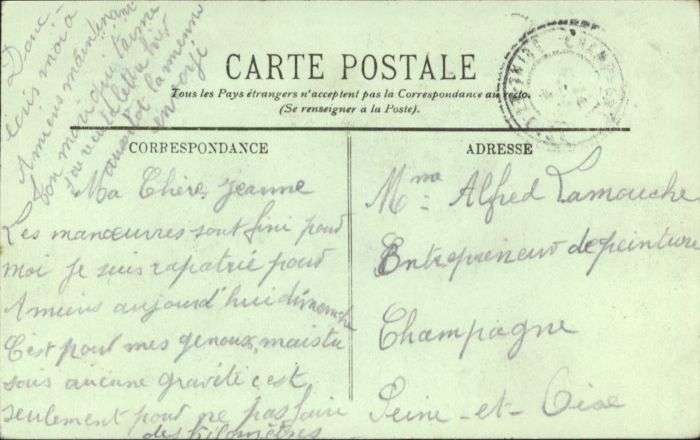 CARTE POSTALE
Tous les Pays étrangers n'acceptent pas la Correspondance au recto.
(Se renseigner à la Poste).
CORRESPONDANCE
Ma Chère Jeanne
Les manœuvres sont fini pour
moi je suis rapatrié pour
Amiens aujourd'hui dimanche
C'est pour mes genoux, mais tu
sais aucune gravité c'est
seulement pour ne pas faire
des kilomètres
Donc
écris moi à
Amiens maintenant
Ton mari qui t'aime
J'ai reçu ta lettre hier
aussitôt la mienne
envoyé
ADRESSE
Mme Alfred Lamouche
Entrepreneur de peinture
Champagne
Seine-et-Oise